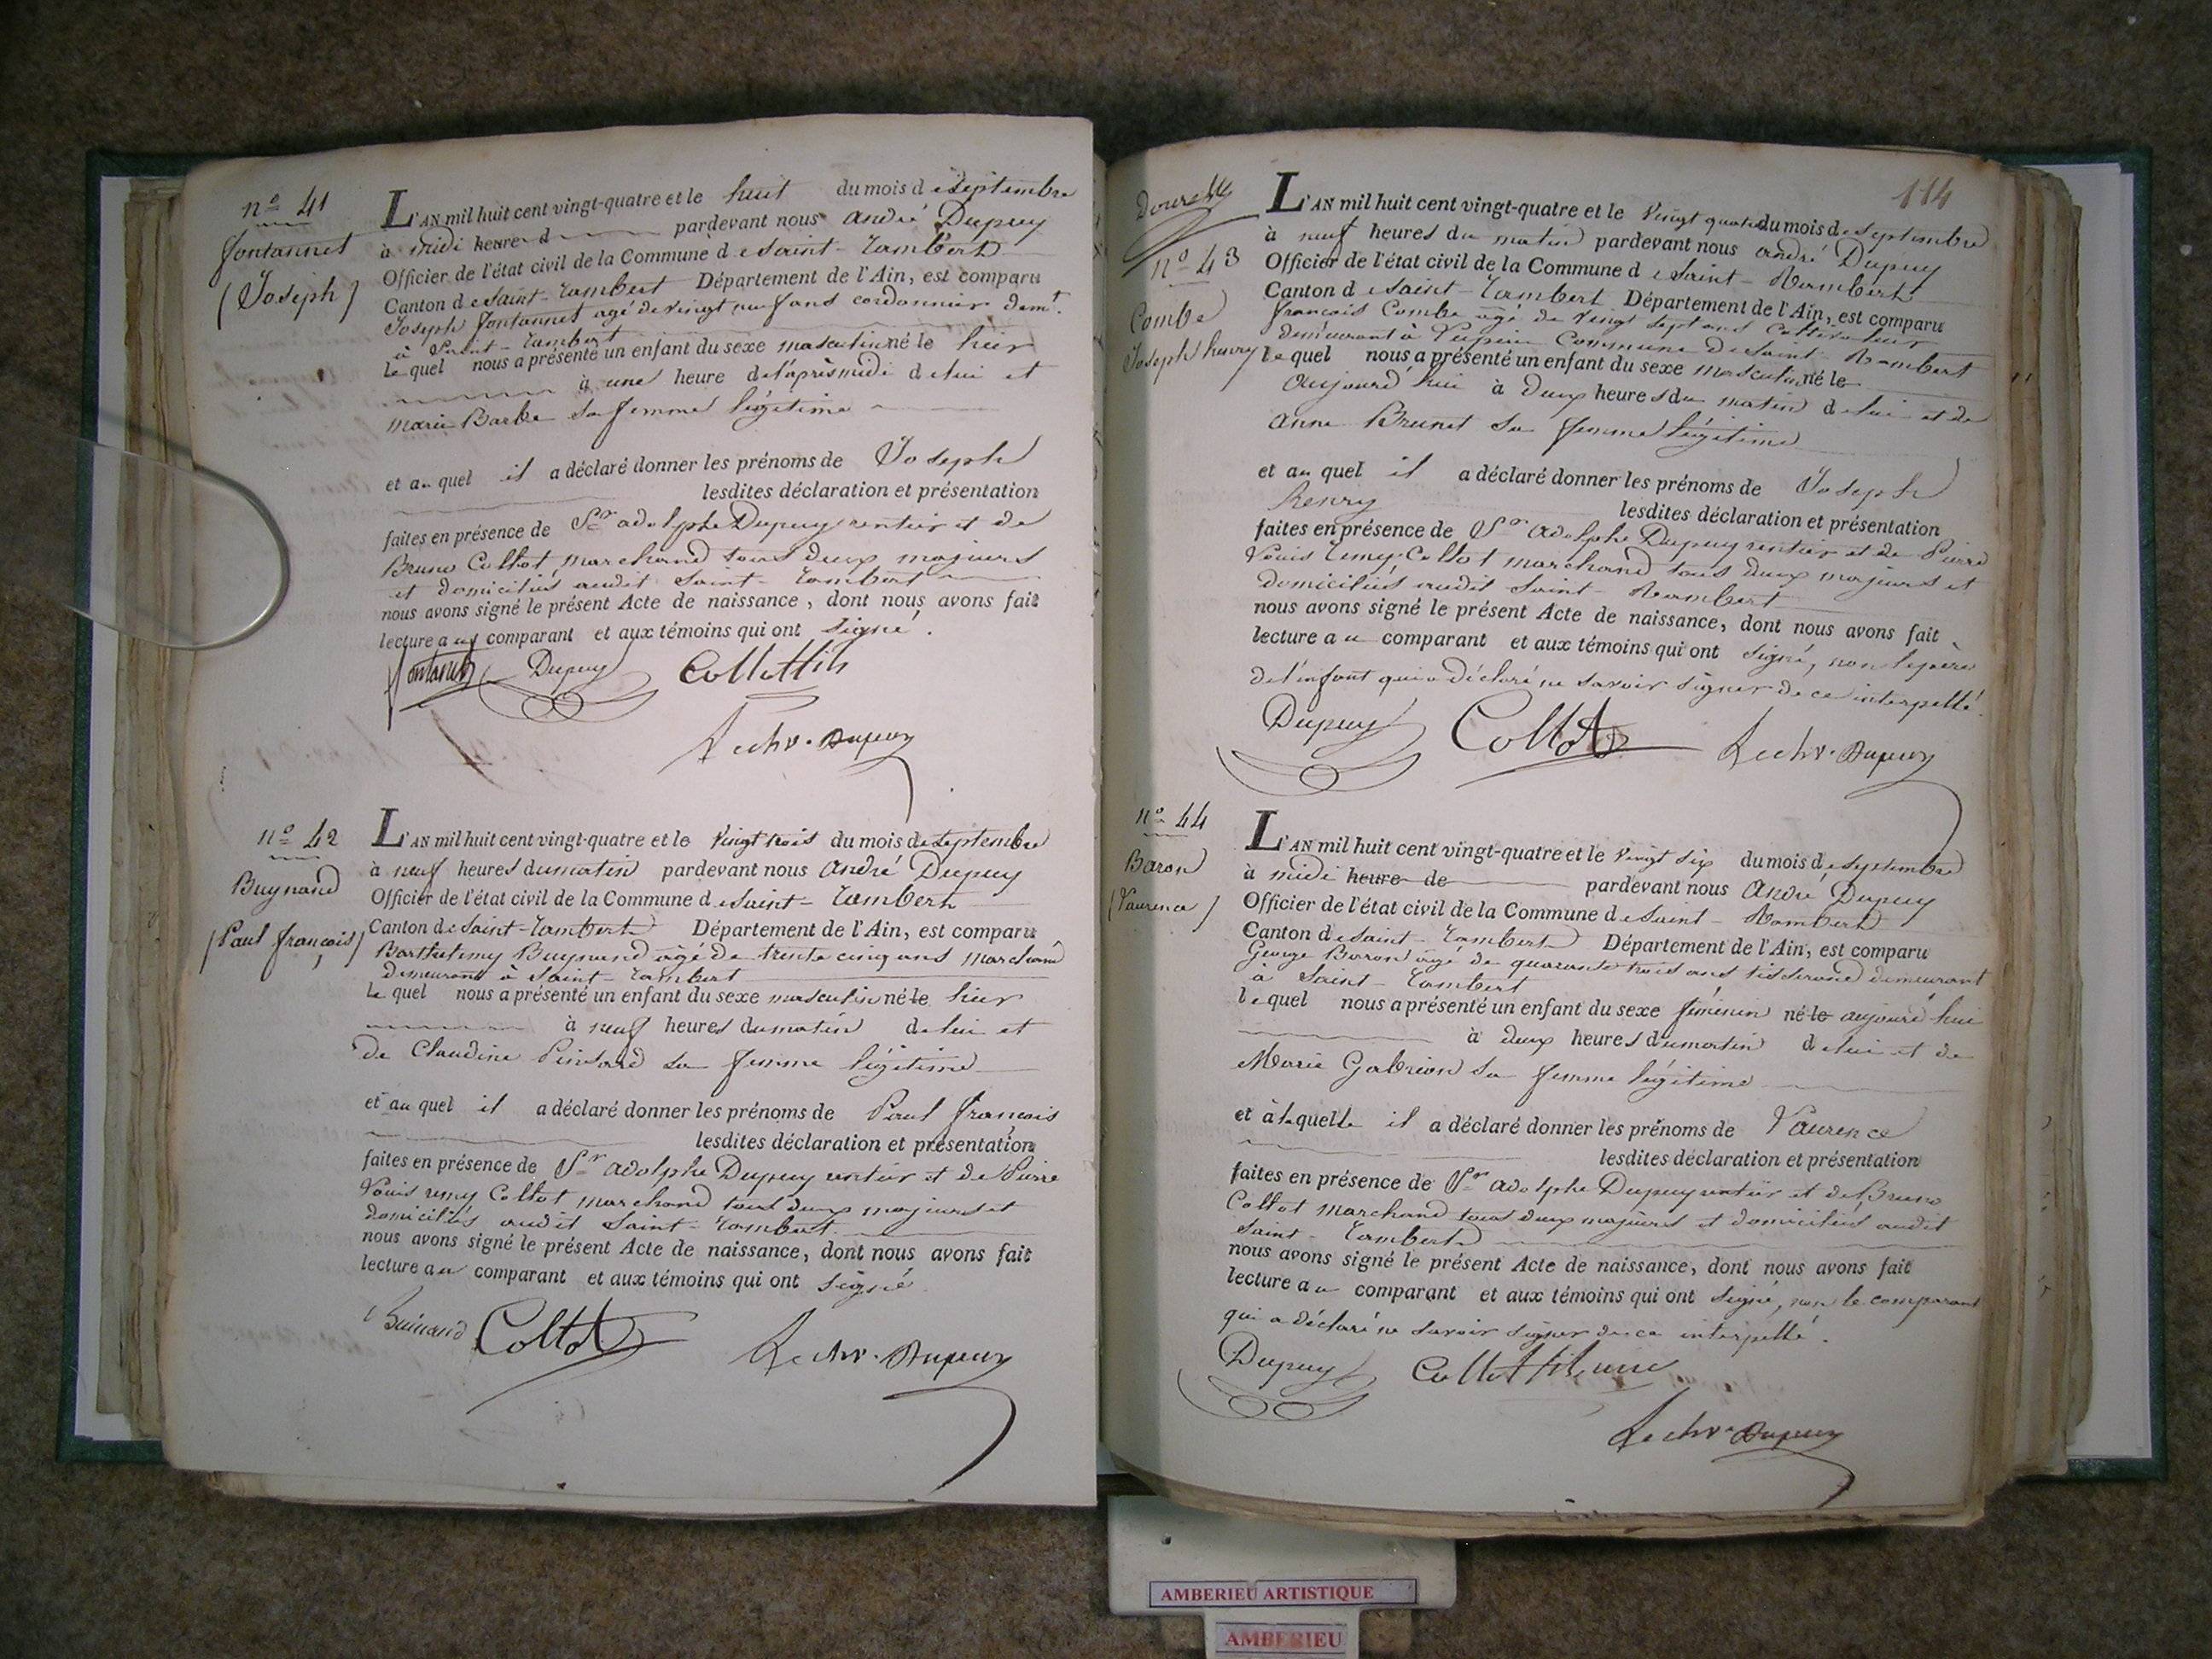 nº 41
fontannet
(Joseph)
L'AN mil huit cent vingt-quatre et le huit du mois de Septembre
à midi heure d pardevant nous André Dupuy
Officier de l'état civil de la Commune de Saint-Rambert
Canton de Saint-Rambert Département de l'Ain, est comparu
Joseph fontannet agé de vingt neuf ans cordonnier demt.
à Saint-Rambert
lequel nous a présenté un enfant du sexe masculin né le hier
à une heure de l'après midi de lui et
marie Barbe sa femme légitime
et au quel il a déclaré donner les prénoms de Joseph
lesdites déclaration et présentation
faites en présence de Sr adolphe Dupuy rentier et de
Bruno Collot marchand tous deux majeurs
et domiciliés audit Saint-Rambert
nous avons signé le présent Acte de naissance, dont nous avons fait
lecture au comparant et aux témoins qui ont signé.
fontanet Dupuy Collot fils
Dupuy
nº 42
Buynand
(Paul françois)
L'AN mil huit cent vingt-quatre et le vingt trois du mois de Septembre
à neuf heures du matin pardevant nous André Dupuy
Officier de l'état civil de la Commune de Saint-Rambert
Canton de Saint-Rambert Département de l'Ain, est comparu
Barthelemy Buynand agé de trente cinq ans marchand
demeurant à Saint-Rambert
lequel nous a présenté un enfant du sexe masculin né le hier
à neuf heures du matin de lui et
de Claudine Pinsard sa femme légitime
et au quel il a déclaré donner les prénoms de Paul françois
lesdites déclaration et présentation
faites en présence de Sr adolphe Dupuy rentier et de Pierre
Louis remy Collot marchand tous deux majeurs et
domiciliés audit Saint-Rambert
nous avons signé le présent Acte de naissance, dont nous avons fait
lecture au comparant et aux témoins qui ont signé
Buinand Collot Dupuy
114
nº 43
Combe
Joseph henry
L'AN mil huit cent vingt-quatre et le vingt quatre du mois de Septembre
à neuf heures du matin pardevant nous andré Dupuy
Officier de l'état civil de la Commune de Saint-Rambert
Canton de Saint-Rambert Département de l'Ain, est comparu
françois Combe agé de vingt sept ans Cultivateur
demeurant à Commune de Saint-Rambert
lequel nous a présenté un enfant du sexe masculin né le
aujourd'hui à deux heures du matin de lui et de
anne Brunet sa femme légitime
et au quel il a déclaré donner les prénoms de Joseph
henry lesdites déclaration et présentation
faites en présence de Sr adolphe Dupuy rentier et de Pierre
Louis remy Collot marchand tous deux majeurs et
domiciliés audit Saint-Rambert
nous avons signé le présent Acte de naissance, dont nous avons fait
lecture au comparant et aux témoins qui ont signé, non le père
de l'enfant qui a déclaré ne savoir signer de ce interpellé.
Dupuy Collot Dupuy
nº 44
Baron
(Laurence)
L'AN mil huit cent vingt-quatre et le vingt six du mois de Septembre
à midi heure de pardevant nous André Dupuy
Officier de l'état civil de la Commune de Saint-Rambert
Canton de Saint-Rambert Département de l'Ain, est comparu
George Baron agé de quarante trois ans tisserand demeurant
à Saint-Rambert
lequel nous a présenté un enfant du sexe féminin né le aujourd'hui
à deux heures du matin de lui et de
Marie Gabrion sa femme légitime
et à laquelle il a déclaré donner les prénoms de Laurence
lesdites déclaration et présentation
faites en présence de Sr adolphe Dupuy rentier et de Bruno
Collot marchand tous deux majeurs et domiciliés audit
Saint-Rambert
nous avons signé le présent Acte de naissance, dont nous avons fait
lecture au comparant et aux témoins qui ont signé, non le comparant
qui a déclaré ne savoir signer de ce interpellé.
Dupuy Collot fils
Dupuy
AMBERIEU ARTISTIQUE
AMBERIEU